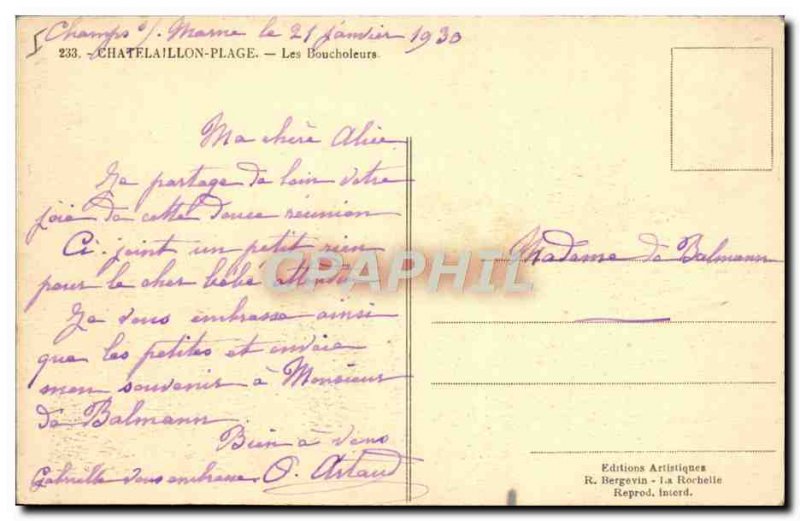 Champs s/. Marne le 21 janvier 1930
233. - CHATELAILLON-PLAGE. - Les Boucholeurs.
Ma chère Alice
Je partage de loin votre
joie de cette douce réunion
Ci-joint un petit rien
pour le cher bébé attendu
Je vous embrasse ainsi
que les petites et envoie
mon souvenir à Monsieur
de Balmann.
Bien à vous
Gabrielle vous embrasse. Artaud
CPARPHIL
Madame de Balmann
Editions Artistiques
R. Bergevin - La Rochelle
Reprod. interd.